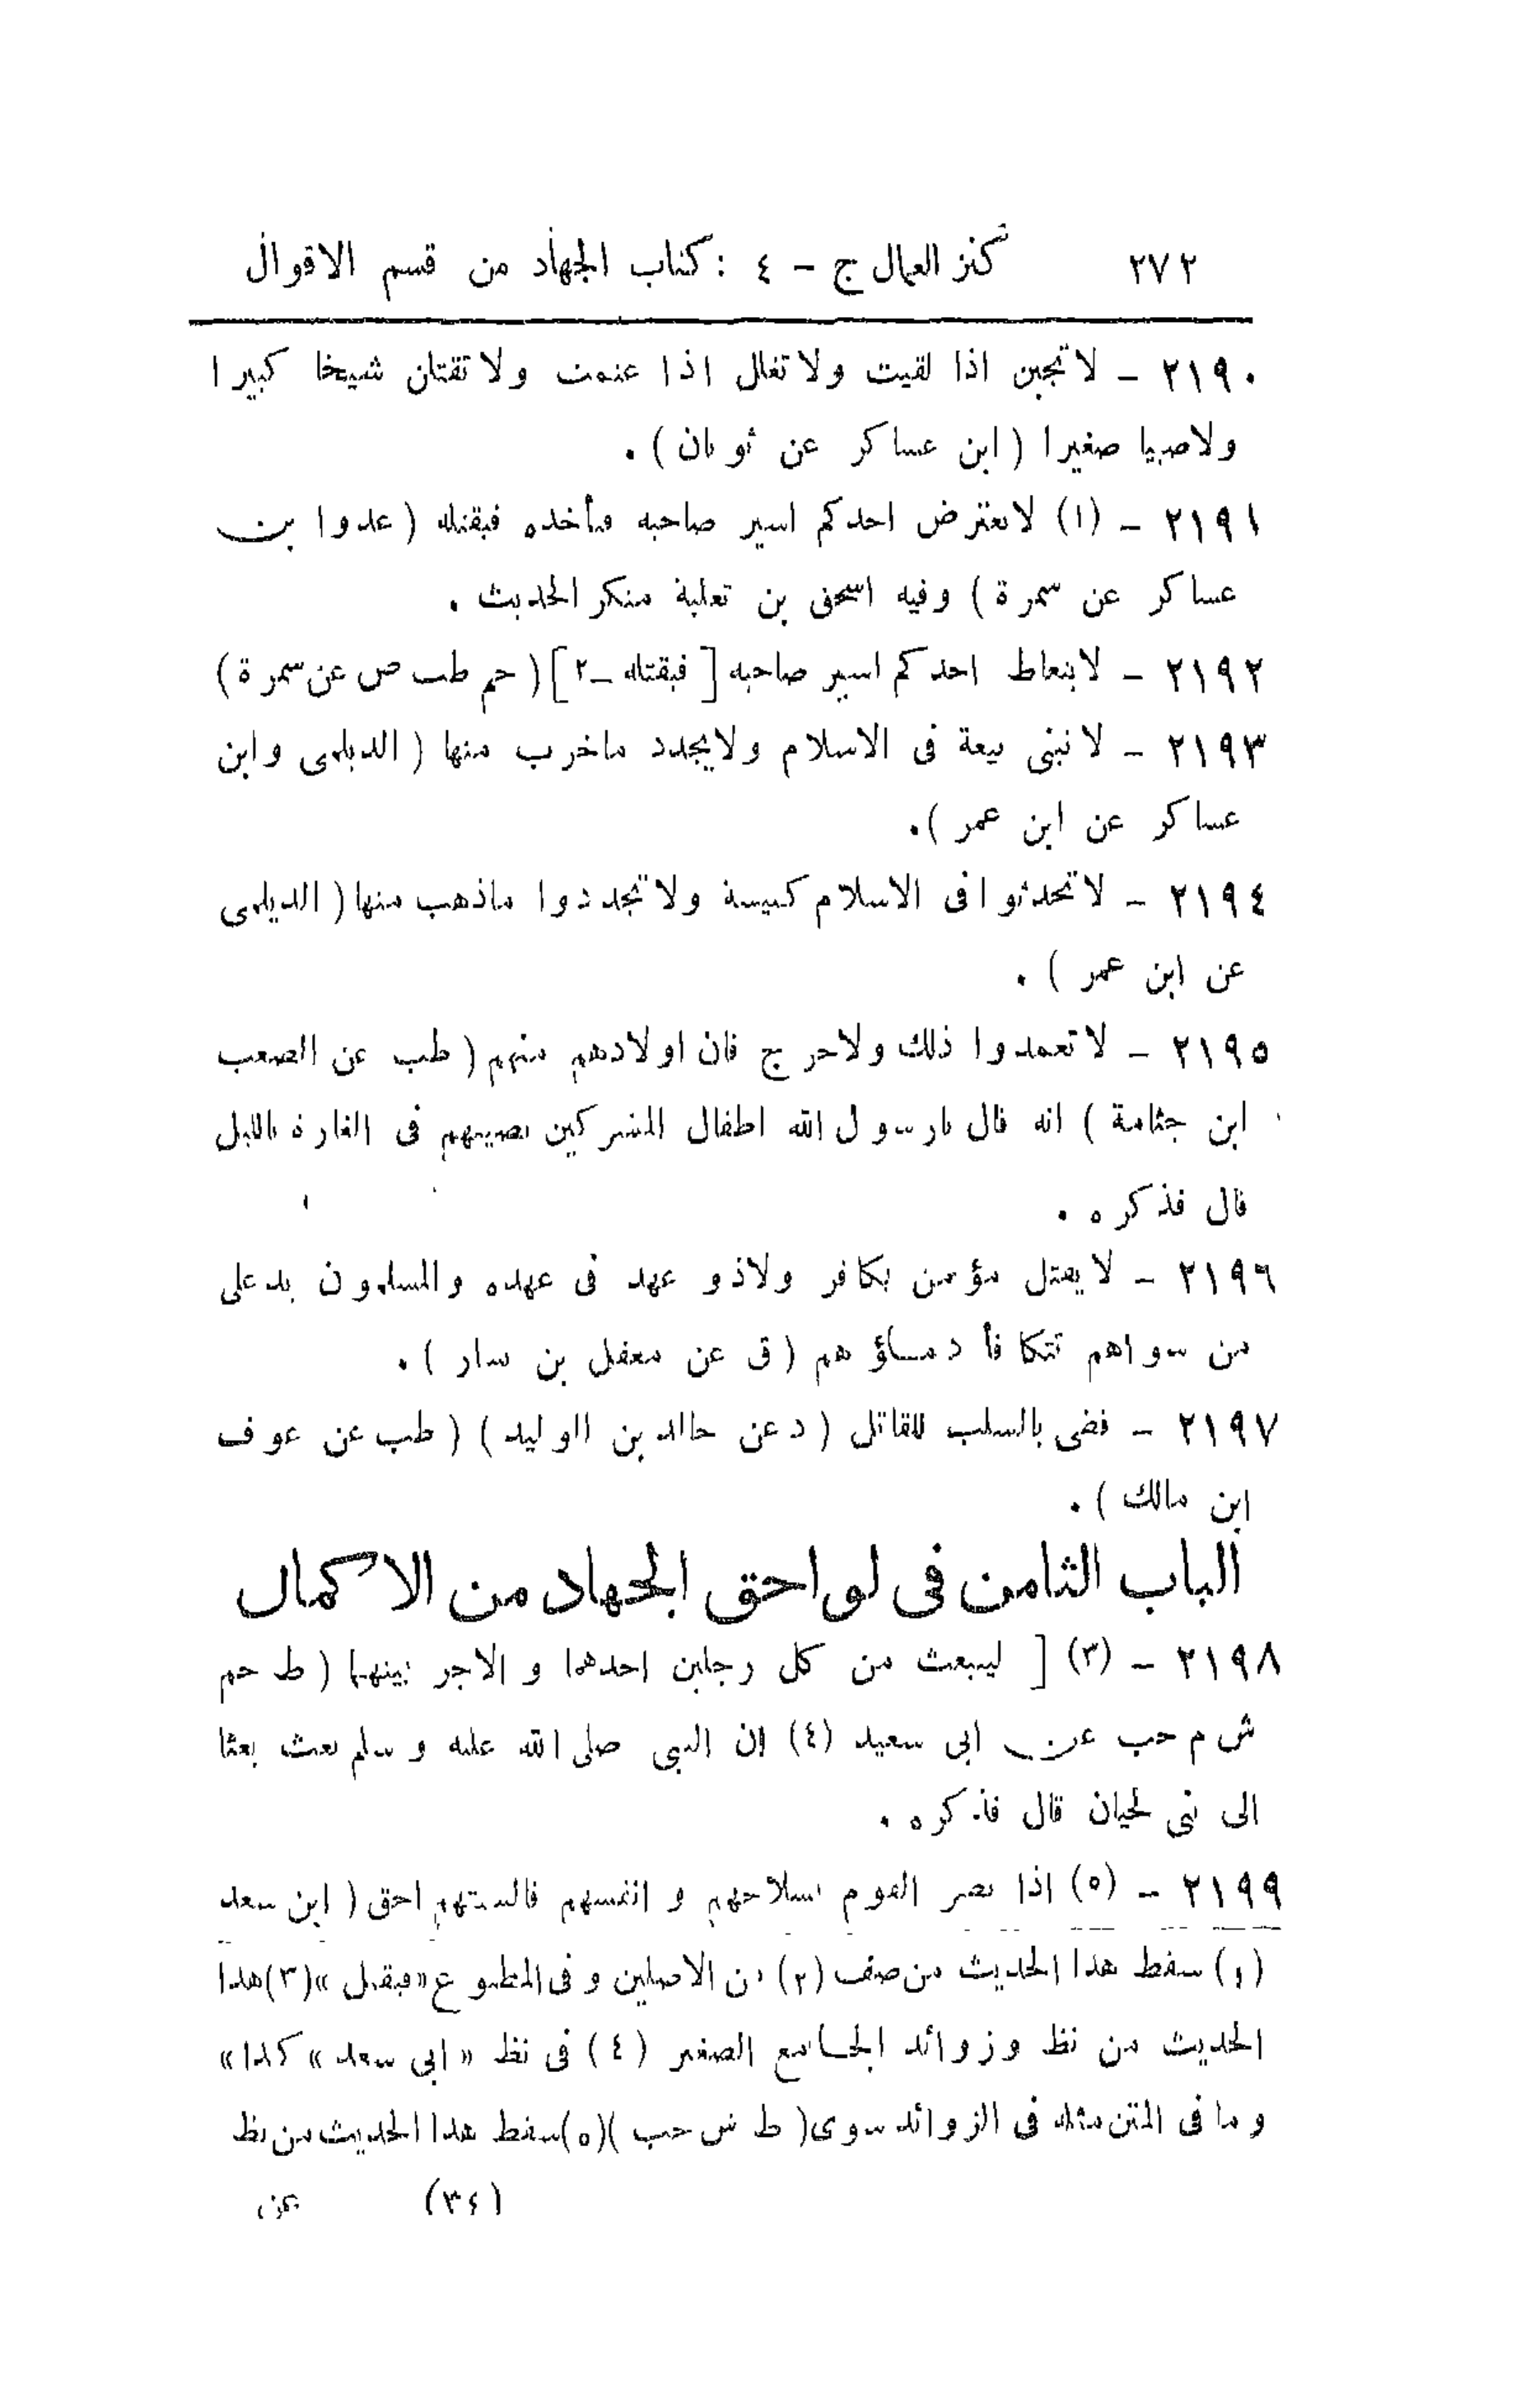 ٢٧٢ كنز العمال ج - ٤ : كتاب الجهاد من قسم الاقوال
٢١٩٠ - لا تجبن اذا لقيت ولا تغال اذا غنمت ولا تقتلن شيخا كبيرا
ولا صبيا صغيرا ( ابن عساكر عن ثوبان ) .
٢١٩١ - (١) لا يعترض احدكم اسير صاحبه فيأخذه فيقتله ( عد وا بن
عساكر عن سمرة ) وفيه اسحق بن ثعلبة منكر الحديث .
٢١٩٢ - لا يتعاط احدكم اسير صاحبه [ فيقتله -٢ ] ( حم طب ص عن سمرة )
٢١٩٣ - لا تبنى بيعة فى الاسلام ولا يجدد ما خرب منها ( الديلمى وابن
عساكر عن ابن عمر ) .
٢١٩٤ - لا تحدثوا فى الاسلام كنيسة ولا تجددوا ما ذهب منها ( الديلمى
عن ابن عمر ) .
٢١٩٥ - لا تعمدوا ذلك ولا حرج فان اولادهم منهم ( طب عن الصعب
ابن جثامة ) انه قال يا رسول الله اطفال المشركين نصيبهم فى الغارة بالليل
قال فذكره .
٢١٩٦ - لا يقتل مؤمن بكافر ولا ذو عهد فى عهده والمسلمون يد على
من سواهم تتكافأ دماؤهم ( ق عن معقل بن يسار ) .
٢١٩٧ - قضى بالسلب للقاتل ( د عن خالد بن الوليد ) ( طب عن عوف
ابن مالك ) .
الباب الثامن فى لواحق الجهاد من الاكمال
٢١٩٨ - (٣) [ لينبعث من كل رجلين احدهما و الاجر بينهما ( ط حم
ش م حب عن ابى سعيد (٤) ان النبى صلى الله عليه و سلم بعث بعثا
الى بنى لحيان قال فذكره .
٢١٩٩ - (٥) اذا نصر القوم بسلاحهم و انفسهم فالسنتهم احق ( ابن سعد
(١) سقط هذا الحديث من صف (٢) من الاصلين و فى المطبوع «فيقتل» (٣) هذا
الحديث من نظ وزوائد الجامع الصغير (٤) فى نظ « ابى سعد » كذا »
و ما فى المتن مثله فى الزوائد سوى ( ط ش حب ) (٥) سقط هذا الحديث من نظ
(٣٤) عن